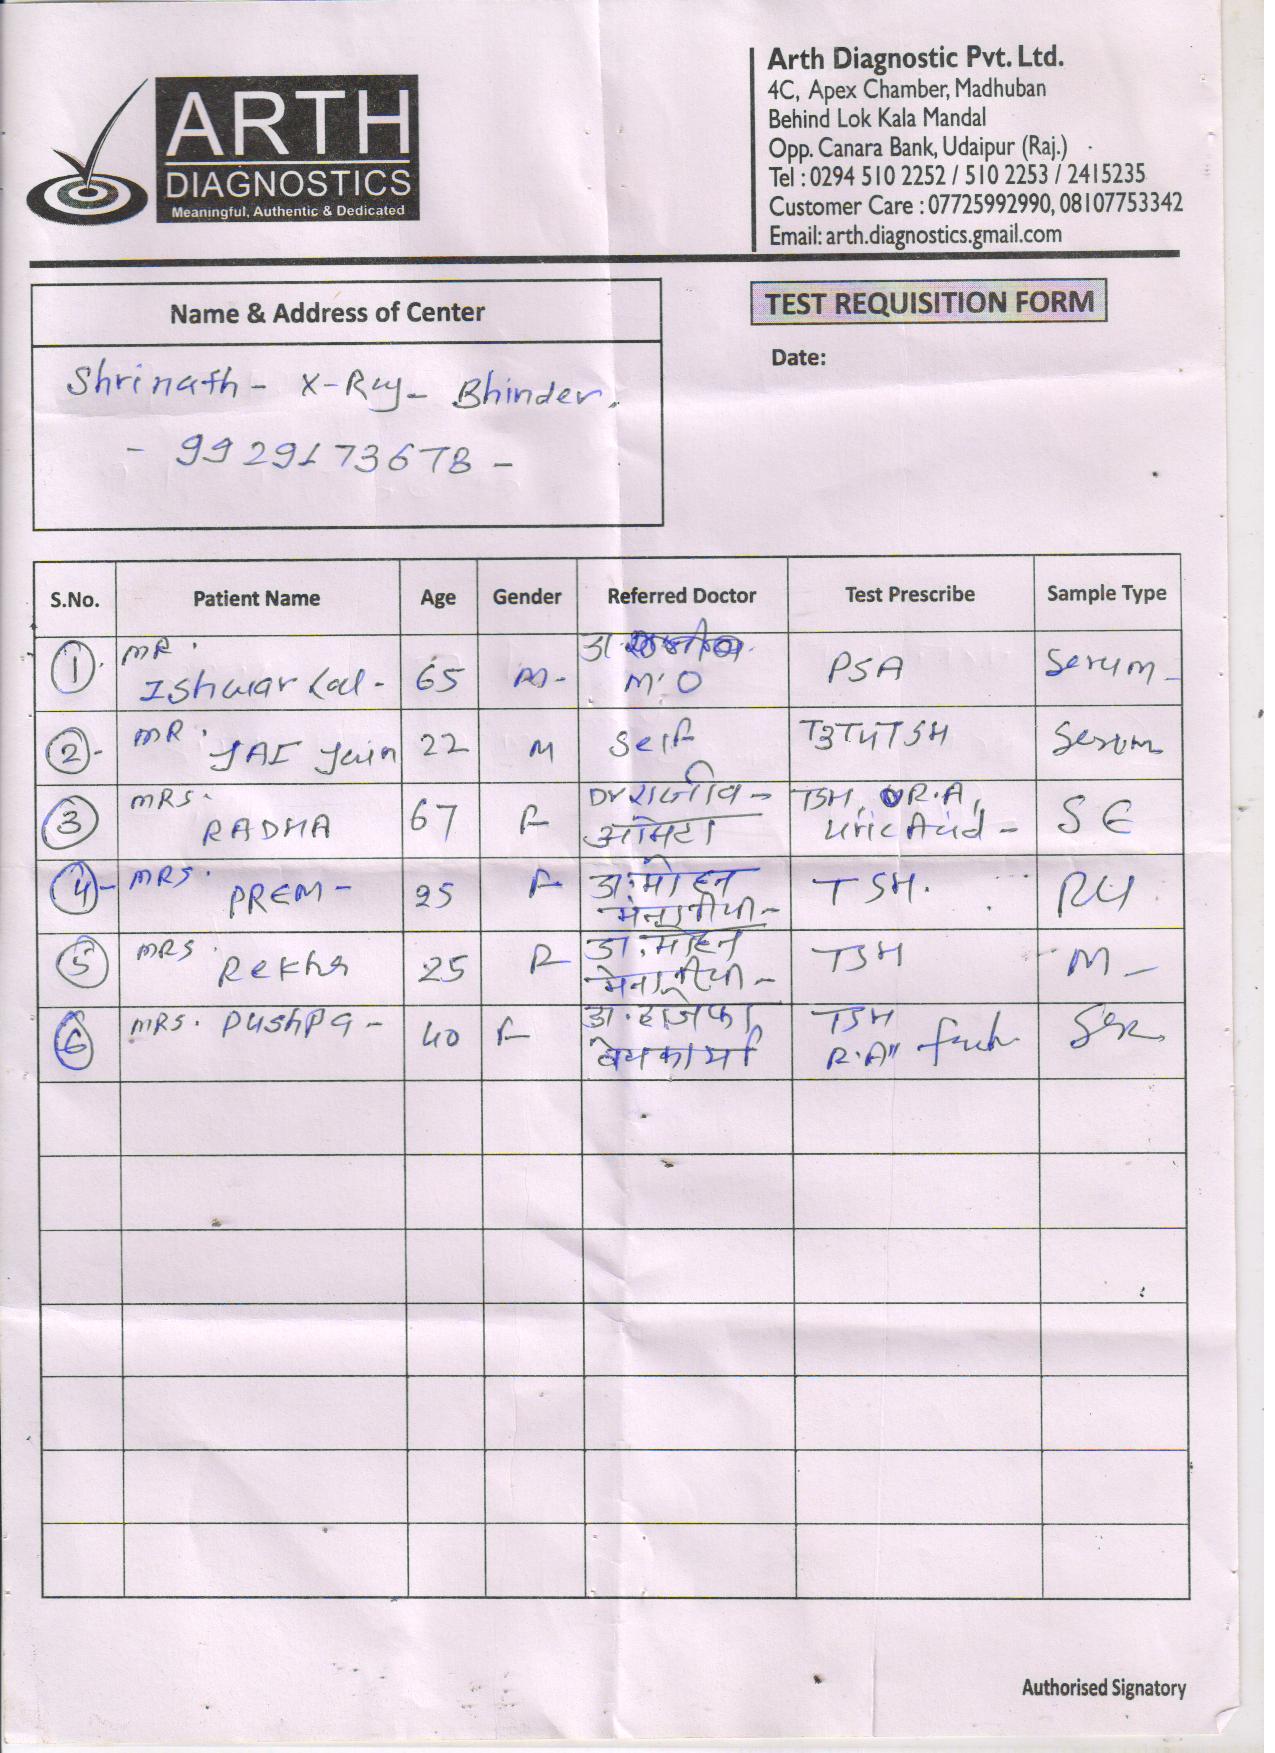 ARTH
DIAGNOSTICS
Meaningful, Authentic & Dedicated
Arth Diagnostic Pvt. Ltd.
4C, Apex Chamber, Madhuban
Behind Lok Kala Mandal
Opp. Canara Bank, Udaipur (Raj.)
Tel : 0294 510 2252 / 510 2253 / 2415235
Customer Care : 07725992990, 08107753342
Email: arth.diagnostics.gmail.com
Name & Address of Center
TEST REQUISITION FORM
Date:
Shrinath - X-Ray - Bhinder.
- 9929173678 -
S.No. Patient Name Age Gender Referred Doctor Test Prescribe Sample Type
1 MR. Ishwar Lal - 65 M - डा. M.O PSA Serum -
2 - MR. JAI Jain 22 M Self T3T4TSH Serum
3 MRS. RADHA 67 F Dr राजीव - आमेटा TSH, R.A, Uric Acid - S E
4 - MRS. PREM - 25 F डा. मोहन TSH. RU
5 MRS. Rekha 25 F डा. मोहन TSH M -
6 MRS. PUSHPA - 40 F डा. TSH R.A"
Authorised Signatory